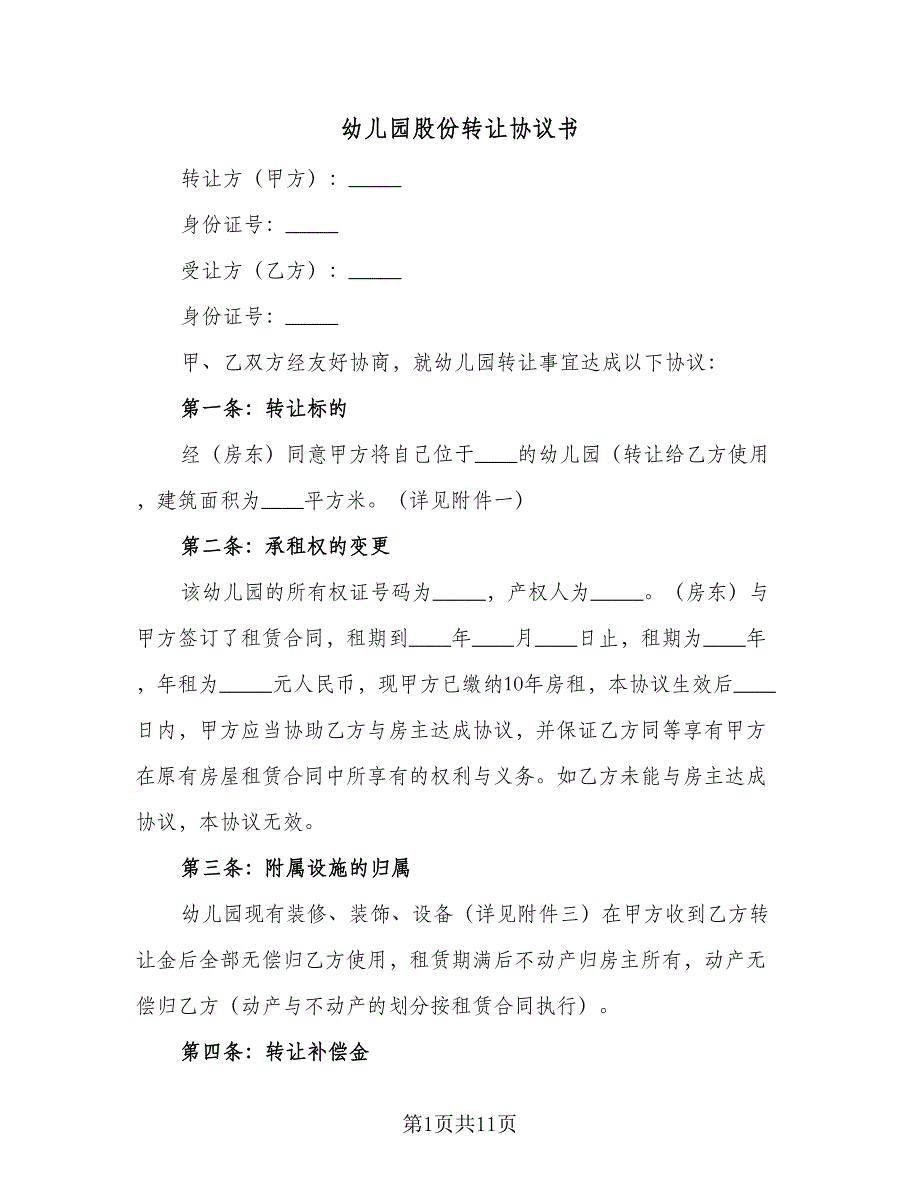 幼儿园股份转让协议书
转让方（甲方）：_____
身份证号：_____
受让方（乙方）：_____
身份证号：_____
甲、乙双方经友好协商，就幼儿园转让事宜达成以下协议：
第一条：转让标的
经（房东）同意甲方将自己位于____的幼儿园（转让给乙方使用
，建筑面积为____平方米。（详见附件一）
第二条：承租权的变更
该幼儿园的所有权证号码为_____，产权人为_____。（房东）与
甲方签订了租赁合同，租期到____年____月____日止，租期为____年
，年租为_____元人民币，现甲方已缴纳10年房租，本协议生效后____
日内，甲方应当协助乙方与房主达成协议，并保证乙方同等享有甲方
在原有房屋租赁合同中所享有的权利与义务。如乙方未能与房主达成
协议，本协议无效。
第三条：附属设施的归属
幼儿园现有装修、装饰、设备（详见附件三）在甲方收到乙方转
让金后全部无偿归乙方使用，租赁期满后不动产归房主所有，动产无
偿归乙方（动产与不动产的划分按租赁合同执行）。
第四条：转让补偿金
第1页共11页